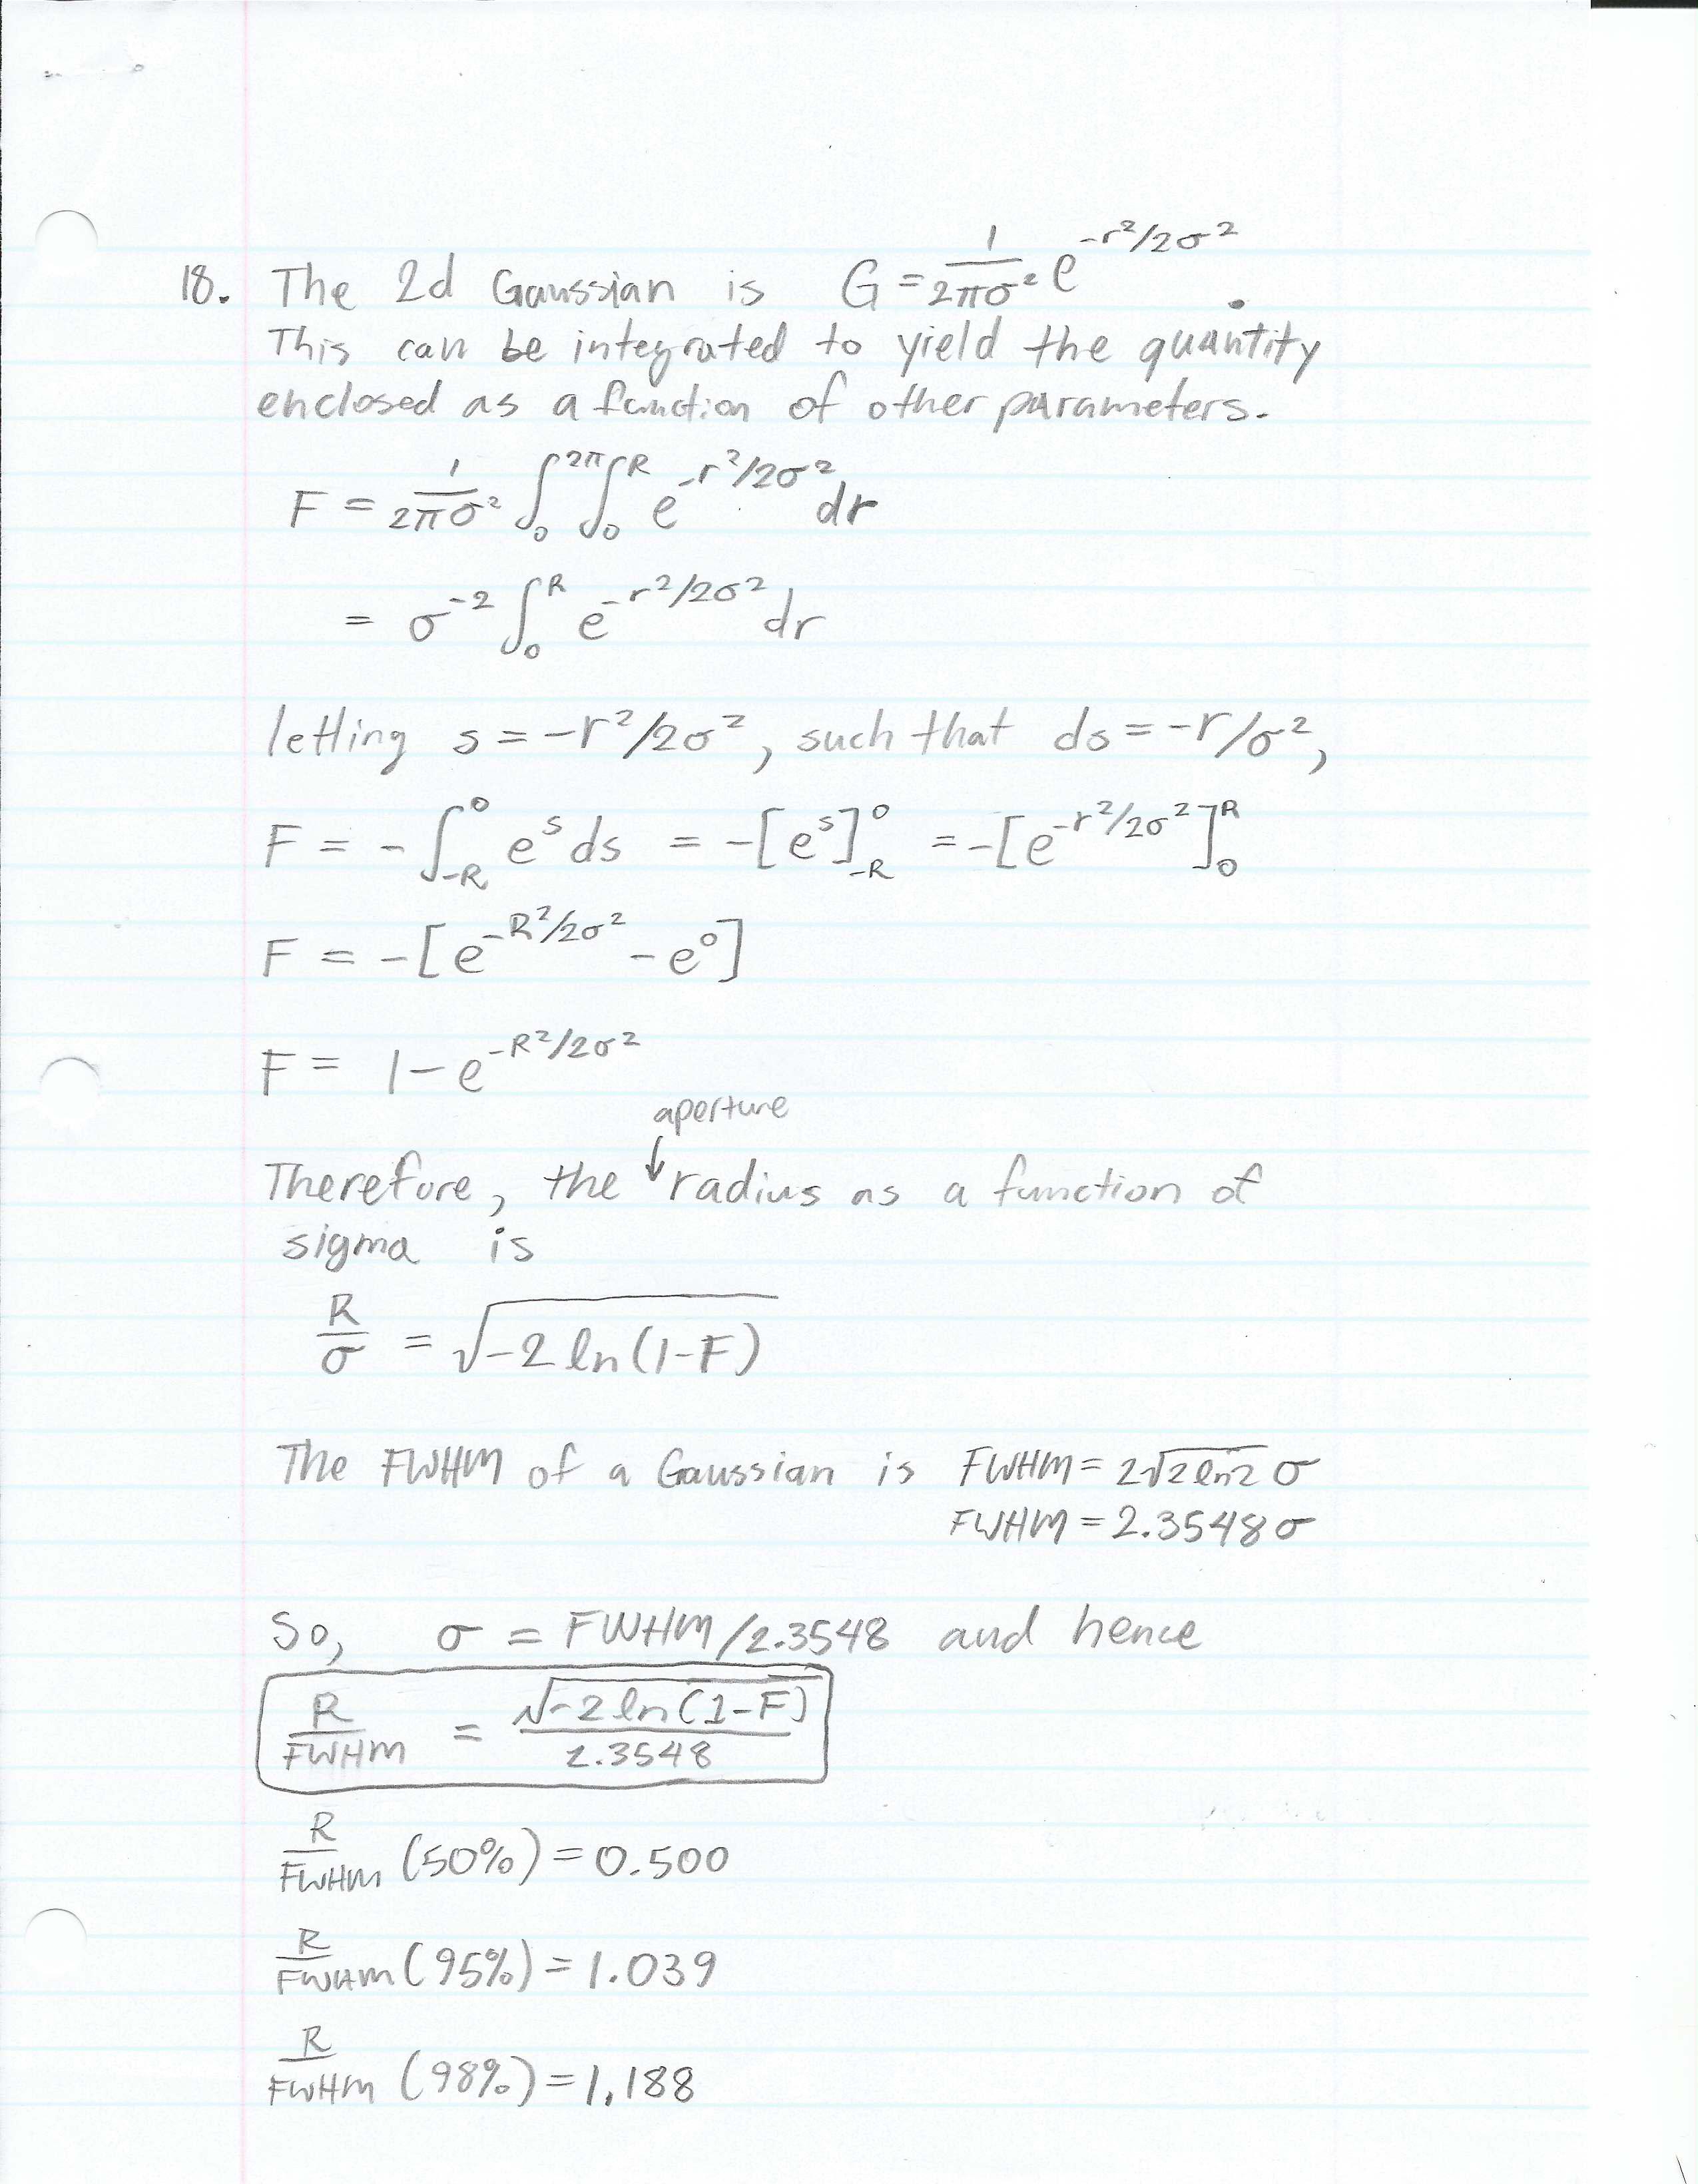 18. The 2d Gaussian is G = 1/2πσ² e^-r²/2σ² .
This can be integrated to yield the quantity
enclosed as a function of other parameters.
F = 1/2πσ² ∫₀^2π ∫₀^R e^-r²/2σ² dr
= σ⁻² ∫₀^R e^-r²/2σ² dr
letting s = -r²/2σ², such that ds = -r/σ²,
F = - ∫_-R^0 e^s ds = -[e^s]_-R^0 = -[e^-r²/2σ²]_0^R
F = -[e^-R²/2σ² - e⁰]
F = 1 - e^-R²/2σ²
aperture
Therefore, the ↓ radius as a function of
sigma is
R/σ = √-2 ln(1-F)
The FWHM of a Gaussian is FWHM = 2√2ln2 σ
FWHM = 2.3548 σ
So, σ = FWHM/2.3548 and hence
R/FWHM = √-2 ln(1-F) / 2.3548
R/FWHM (50%) = 0.500
R/FWHM (95%) = 1.039
R/FWHM (98%) = 1.188